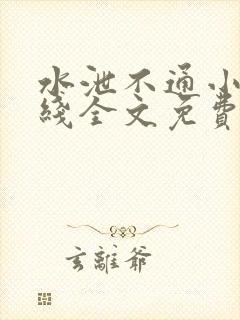 水泄不通小
綫全文免費
玄離爺